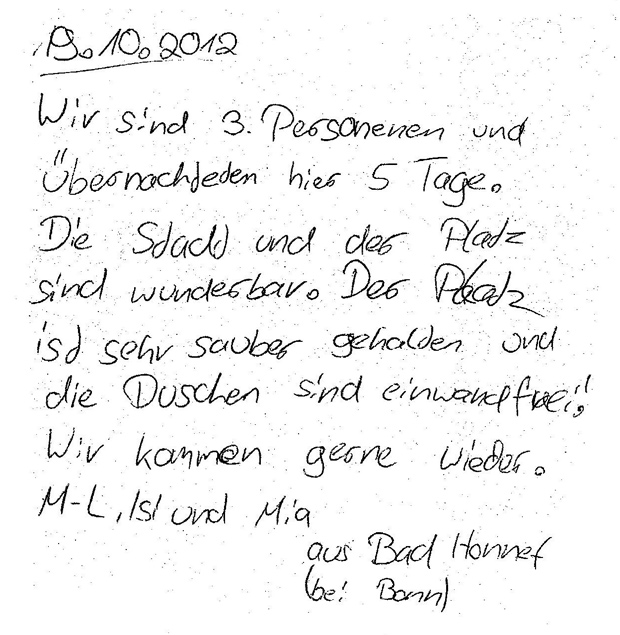 19.10.2012
Wir sind 3. Personenen und
Übernachteten hier 5 Tage.
Die Stadt und der Platz
sind wunderbar. Der Platz
ist sehr sauber gehalten und
die Duschen sind einwandfrei!!
Wir kommen gerne wieder.
M-L, Isi und Mia
aus Bad Honnef
(bei Bonn)